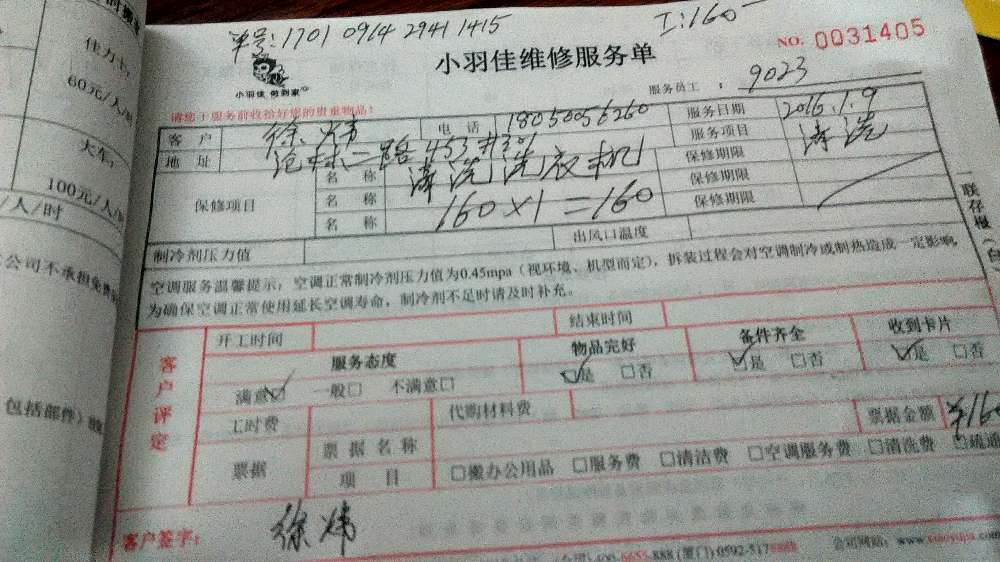 单号:1701 0914 2941 1415
工:160
NO. 0031405
小羽佳维修服务单
小羽佳 做到家
服务员工 : 9023
请您于服务前收拾好您的贵重物品!
客 户 徐炜 电 话 18050056260 服务日期 2016.1.9
地 址 二路453#301 服务项目 清洗
保修项目
名 称 清洗洗衣机 保修期限
名 称 160×1=160 保修期限
名 称 保修期限
制冷剂压力值 出风口温度
空调服务温馨提示:空调正常制冷剂压力值为0.45mpa(视环境、机型而定),拆装过程会对空调制冷或制热造成一定影响,
为确保空调正常使用延长空调寿命,制冷剂不足时请及时补充。
客户评定
开工时间 结束时间
服务态度 物品完好 备件齐全 收到卡片
满意☑ 一般□ 不满意□ ☑是 □否 ☑是 □否 ☑是 □否
工时费 代购材料费 票据金额 ¥16
票据 票据名称 □搬办公用品 □服务费 □清洁费 □空调服务费 □清洗费
项 目
客户签字: 徐炜
400-6655-888 (厦门) 0592-517
公司网站: www.xiaoyujia.com
一联存根
佳力士:
60元/人/时
大车:
100元/人/
/人/时
公司不承担免费
包括部件)